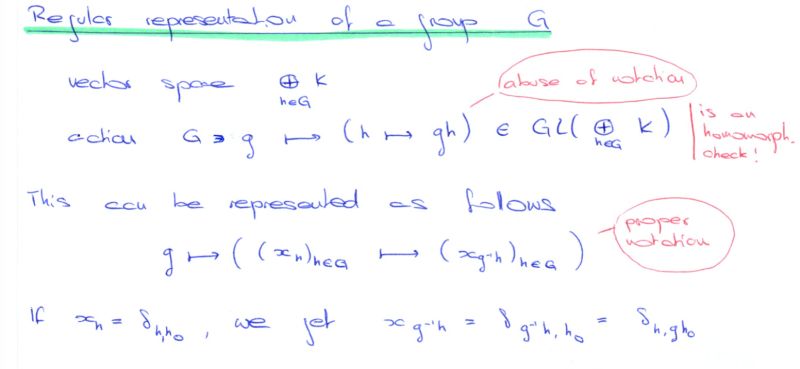 Regular representation of a group G
vector space ⊕_{h∈G} K
abuse of notation
action G ∋ g ⟼ (h ↦ gh) ∈ GL(⊕_{h∈G} K)
is an
homomorph.
check!
This can be represented as follows
g ⟼ ((x_h)_{h∈G} ⟼ (x_{g⁻¹h})_{h∈G})
proper
notation
If x_h = δ_{h,h₀}, we get x_{g⁻¹h} = δ_{g⁻¹h,h₀} = δ_{h,gh₀}